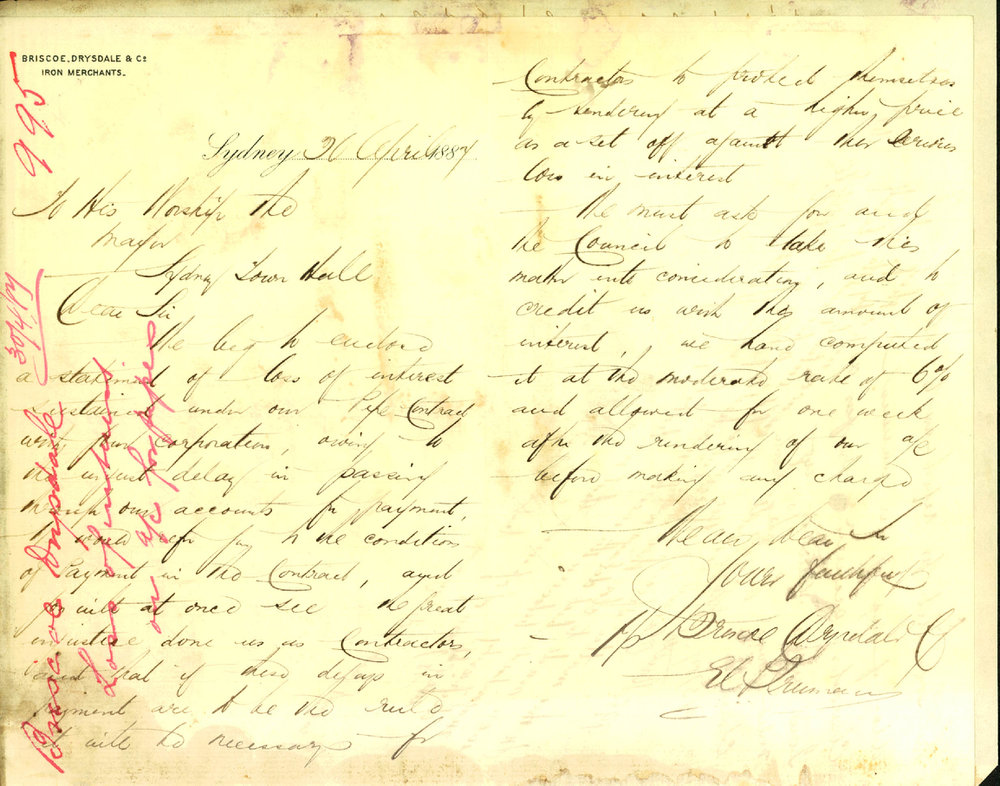 BRISCOE, DRYSDALE & Co
IRON MERCHANTS.
Sydney 26 April 1887
To His Worship the
Mayor
Sydney Town Hall
Dear Sir
We beg to enclose
a statement of loss of interest
sustained under our Pipe Contract
with your Corporation, owing to
the unjust delay in passing
our accounts for payment,
I would refer you to the conditions
of Payment in the Contract, and
you will at once see the great
injustice done us as Contractors,
and that if these delays in
payment are to be the rule
it will be necessary for
Contractors to protect themselves
by tendering at a higher price
as a set off against their serious
loss in interest
We must ask you and
the Council to take this
matter into consideration, and to
credit us with this amount of
interest, we have computed
it at the moderate rate of 6%
and allowed for one week
after the rendering of our a/c
before making any charge
We are, Dear Sir
Yours faithfully
Briscoe Drysdale & Co
995
30/4/87
Briscoe Drysdale
Loss of interest
on a/c for pipes